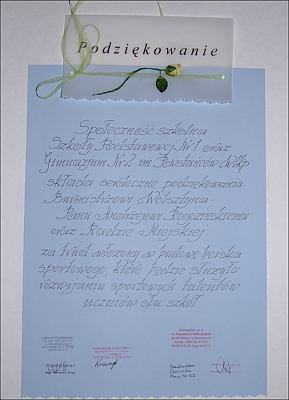 Podziękowanie
Społeczność szkolna
Szkoły Podstawowej Nr 1 oraz
Gimnazjum Nr 2 im. Powstańców Wlkp
składa serdeczne podziękowania
Burmistrzowi Wolsztyna-
Panu Andrzejowi Rogozinskiemu
oraz Radzie Miejskiej
za trud włożony w budowę boiska
sportowego, które będzie służyło
rozwijaniu sportowych talentów
uczniów obu szkół